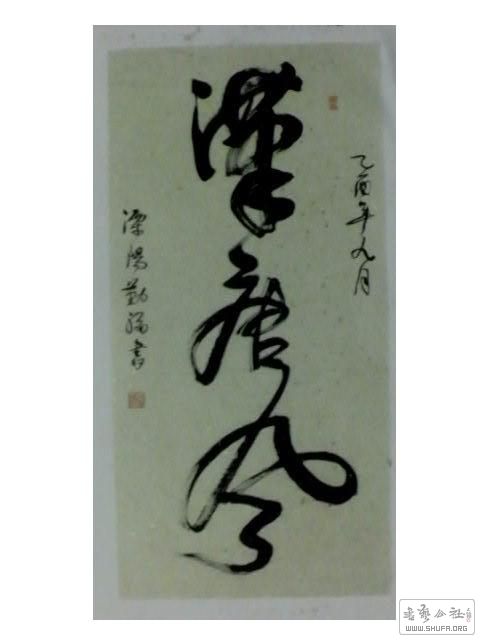 乙酉年九月
漢唐風
溧陽勤福書
書藝公社
WWW.SHUFA.ORG